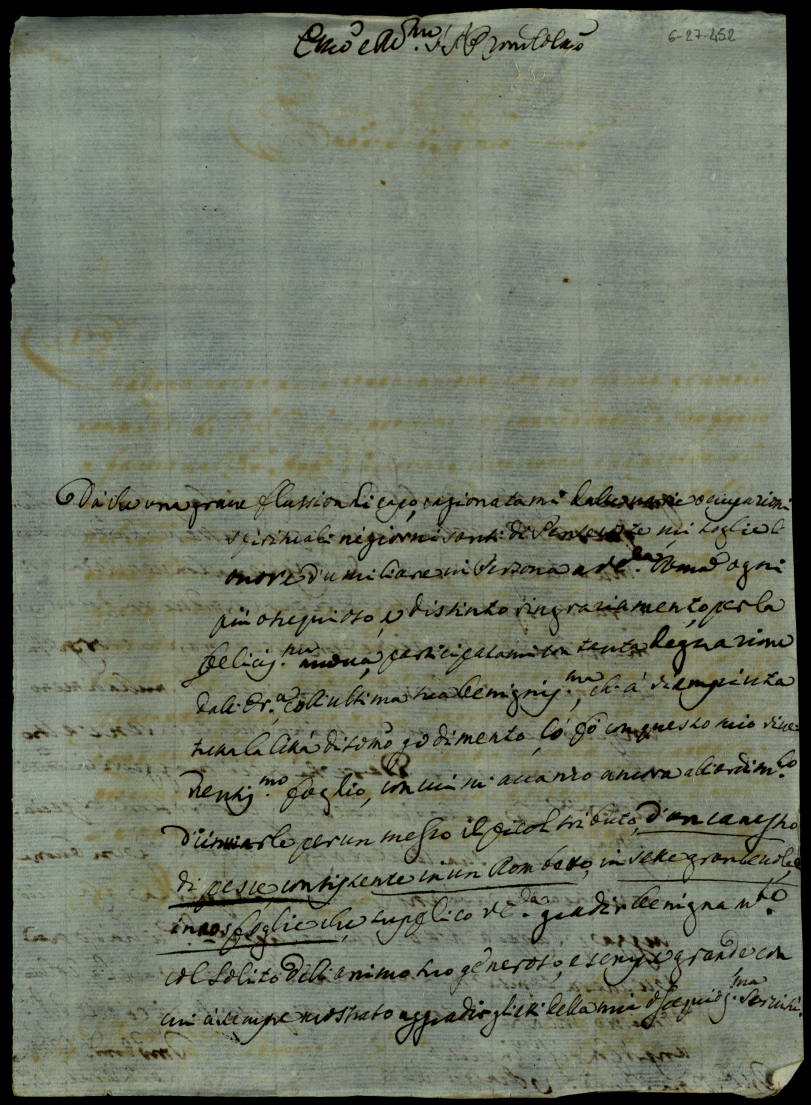 6-27-452
Emo e Rmo Sr Sr Pron Colmo
Dà che una grave flussion di capo, cagionatami dalle varie occupazioni
spirituali ne giorni santi di mi toglie l'
onore d'umiliare in Persona a V. Eza Roma ogni
più ossequioso, e distinto ringraziamento, per la
felicissma nuova, participatami con tanta degnazione
dall' Er.a Coll' ultima sua benignissma, ch' à riempiuta
tutta la Città di somo godimento, lo fò con questo mio rive
rentissmo foglio, con cui mi avanzo ancora all' ardimto
d'inviarle per un messo il picol tributo, d'un canestro
di pesce, consistente in un Rombetto, in sette grancevole, e
in sfoglie che supplico V. Eza gradir benignamte
col solito dell' animo suo generoso, e sempre grande con
cui à sempre mostrato aggradir gl'atti della mia ossequiossma servitù.